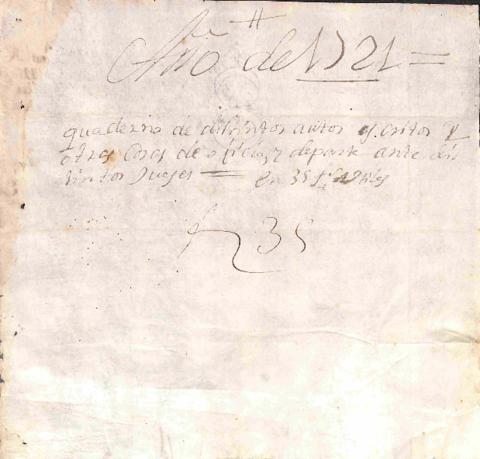 #
Año de 1721 =
quaderno de distintos autos escritos y
otras cosas de oficio, y de parte ante dis
tintos Jueses = en 35 fs utiles
fs 35